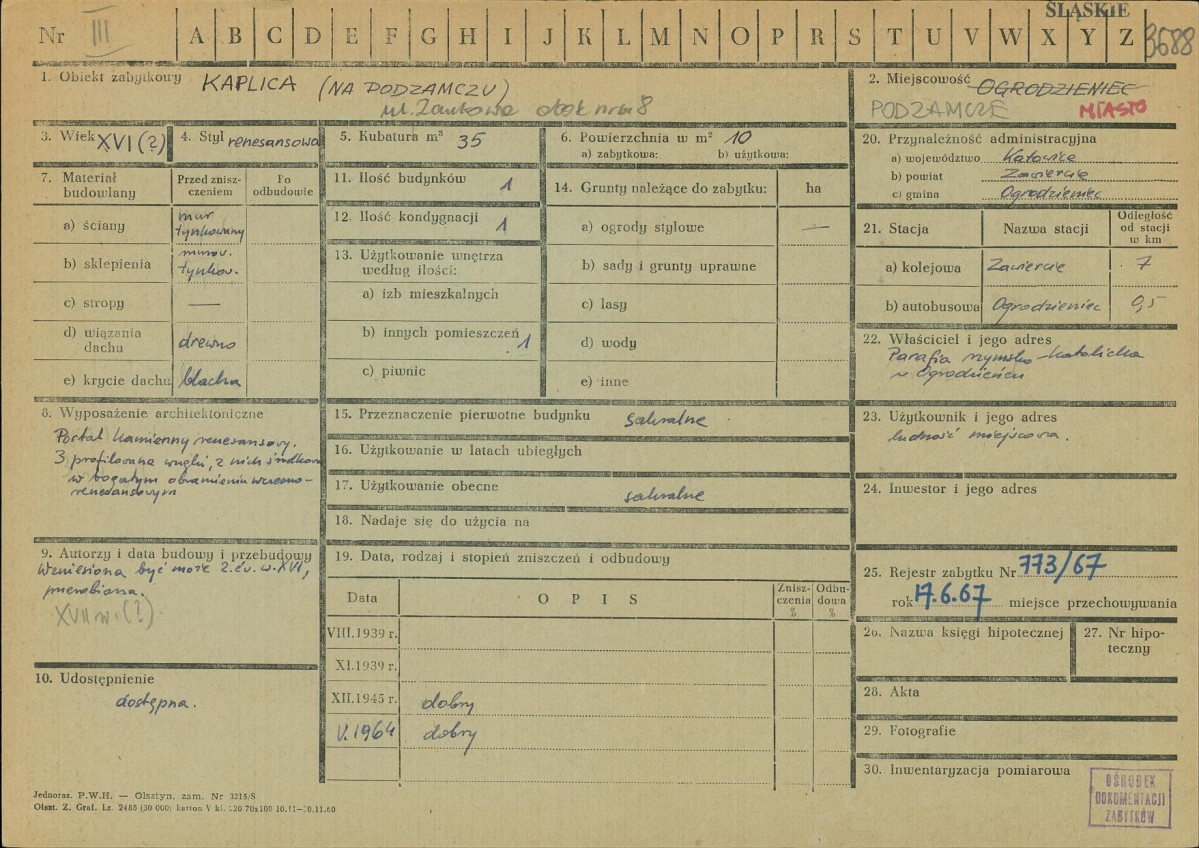 ŚLĄSKIE
Nr III A B C D E F G H I J K L M N O P R S T U V W X Y Z 3688
1. Obiekt zabytkowy KAPLICA (NA PODZAMCZU)
ul. Zamkowa obok nru 8
2. Miejscowość OGRODZIENIEC
PODZAMCZE MIASTO
3. Wiek XVI (?)
4. Styl renesansowa
5. Kubatura m³ 35
6. Powierzchnia w m² 10
a) zabytkowa: b) użytkowa:
7. Materiał budowlany
Przed zniszczeniem
Po odbudowie
a) ściany mur tynkowany
b) sklepienia murow. tynkow.
c) stropy —
d) wiązania dachu drewno
e) krycie dachu blacha
8. Wyposażenie architektoniczne
Portal kamienny renesansowy.
3 profilowane wnęki, z nich środkowa
w bogatym obramieniu wczesno-
renesansowym
9. Autorzy i data budowy i przebudowy
Wzniesiona być może 2. ćw. w. XVI,
przerobiona.
XVII w. (?)
10. Udostępnienie
dostępna.
11. Ilość budynków 1
12. Ilość kondygnacji 1
13. Użytkowanie wnętrza
według ilości:
a) izb mieszkalnych
b) innych pomieszczeń 1
c) piwnic
14. Grunty należące do zabytku: ha
a) ogrody stylowe —
b) sady i grunty uprawne
c) lasy
d) wody
e) inne
15. Przeznaczenie pierwotne budynku sakralne
16. Użytkowanie w latach ubiegłych
17. Użytkowanie obecne sakralne
18. Nadaje się do użycia na
19. Data, rodzaj i stopień zniszczeń i odbudowy
Data OPIS Zniszczenia % Odbudowa %
VIII.1939 r.
XI.1939 r.
XII.1945 r. dobry
V.1964 dobry
20. Przynależność administracyjna
a) województwo Katowice
b) powiat Zawiercie
c) gmina Ogrodzieniec
21. Stacja Nazwa stacji Odległość od stacji w km
a) kolejowa Zawiercie 7
b) autobusowa Ogrodzieniec 0,5
22. Właściciel i jego adres
Parafia rzymsko-katolicka
w Ogrodzieńcu
23. Użytkownik i jego adres
ludność miejscowa.
24. Inwestor i jego adres
25. Rejestr zabytku Nr 773/67
rok 17.6.67 miejsce przechowywania
26. Nazwa księgi hipotecznej
27. Nr hipoteczny
28. Akta
29. Fotografie
30. Inwentaryzacja pomiarowa
OŚRODEK
DOKUMENTACJI
ZABYTKÓW
Jednoraz. P.W.H. — Olsztyn, zam. Nr 3218/S
Olszt. Z. Graf. Lz. 2485 (30 000) karton V kl. 220 70x100 10.11—30.11.60